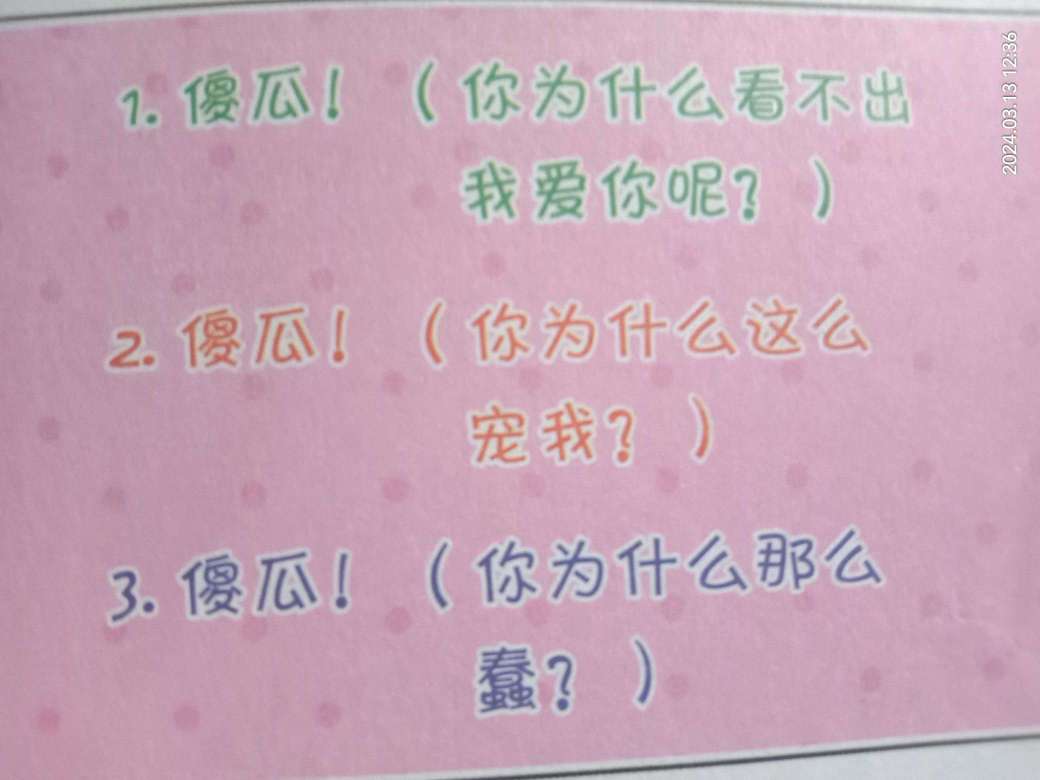 1. 傻瓜！（你为什么看不出
我爱你呢？）
2. 傻瓜！（你为什么这么
宠我？）
3. 傻瓜！（你为什么那么
蠢？）
2024.03.13 12:36